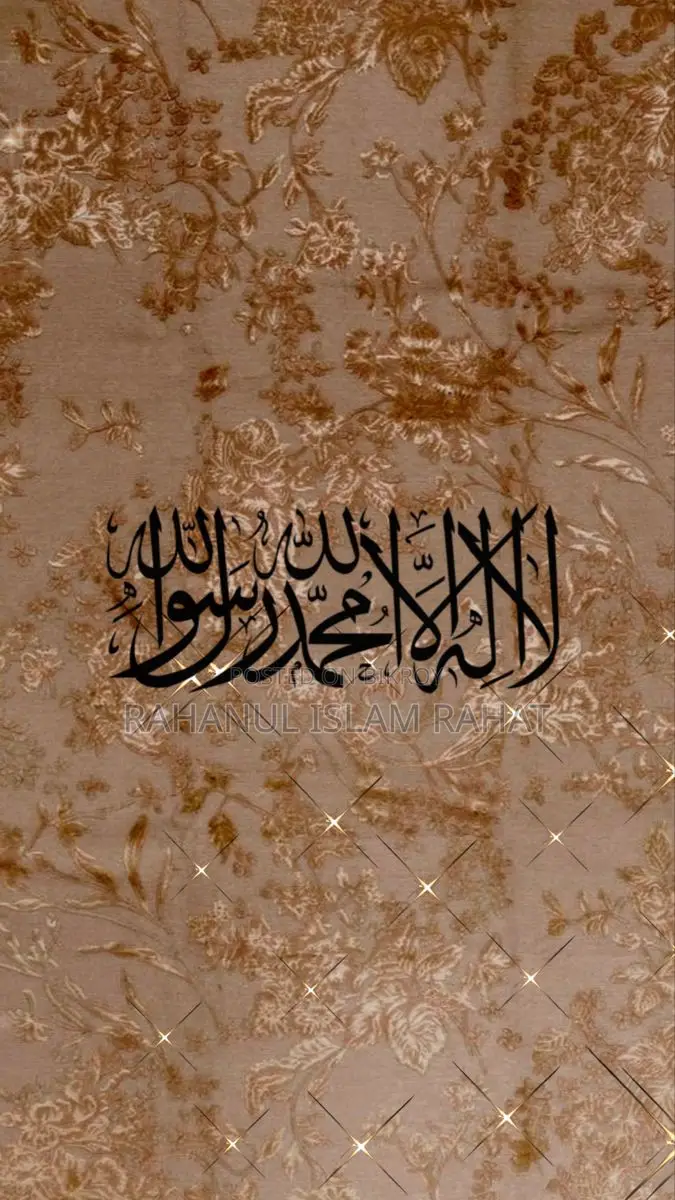 لا اله الا الله محمد رسول الله
POSTED ON BIKROY
RAHANUL ISLAM RAHAT